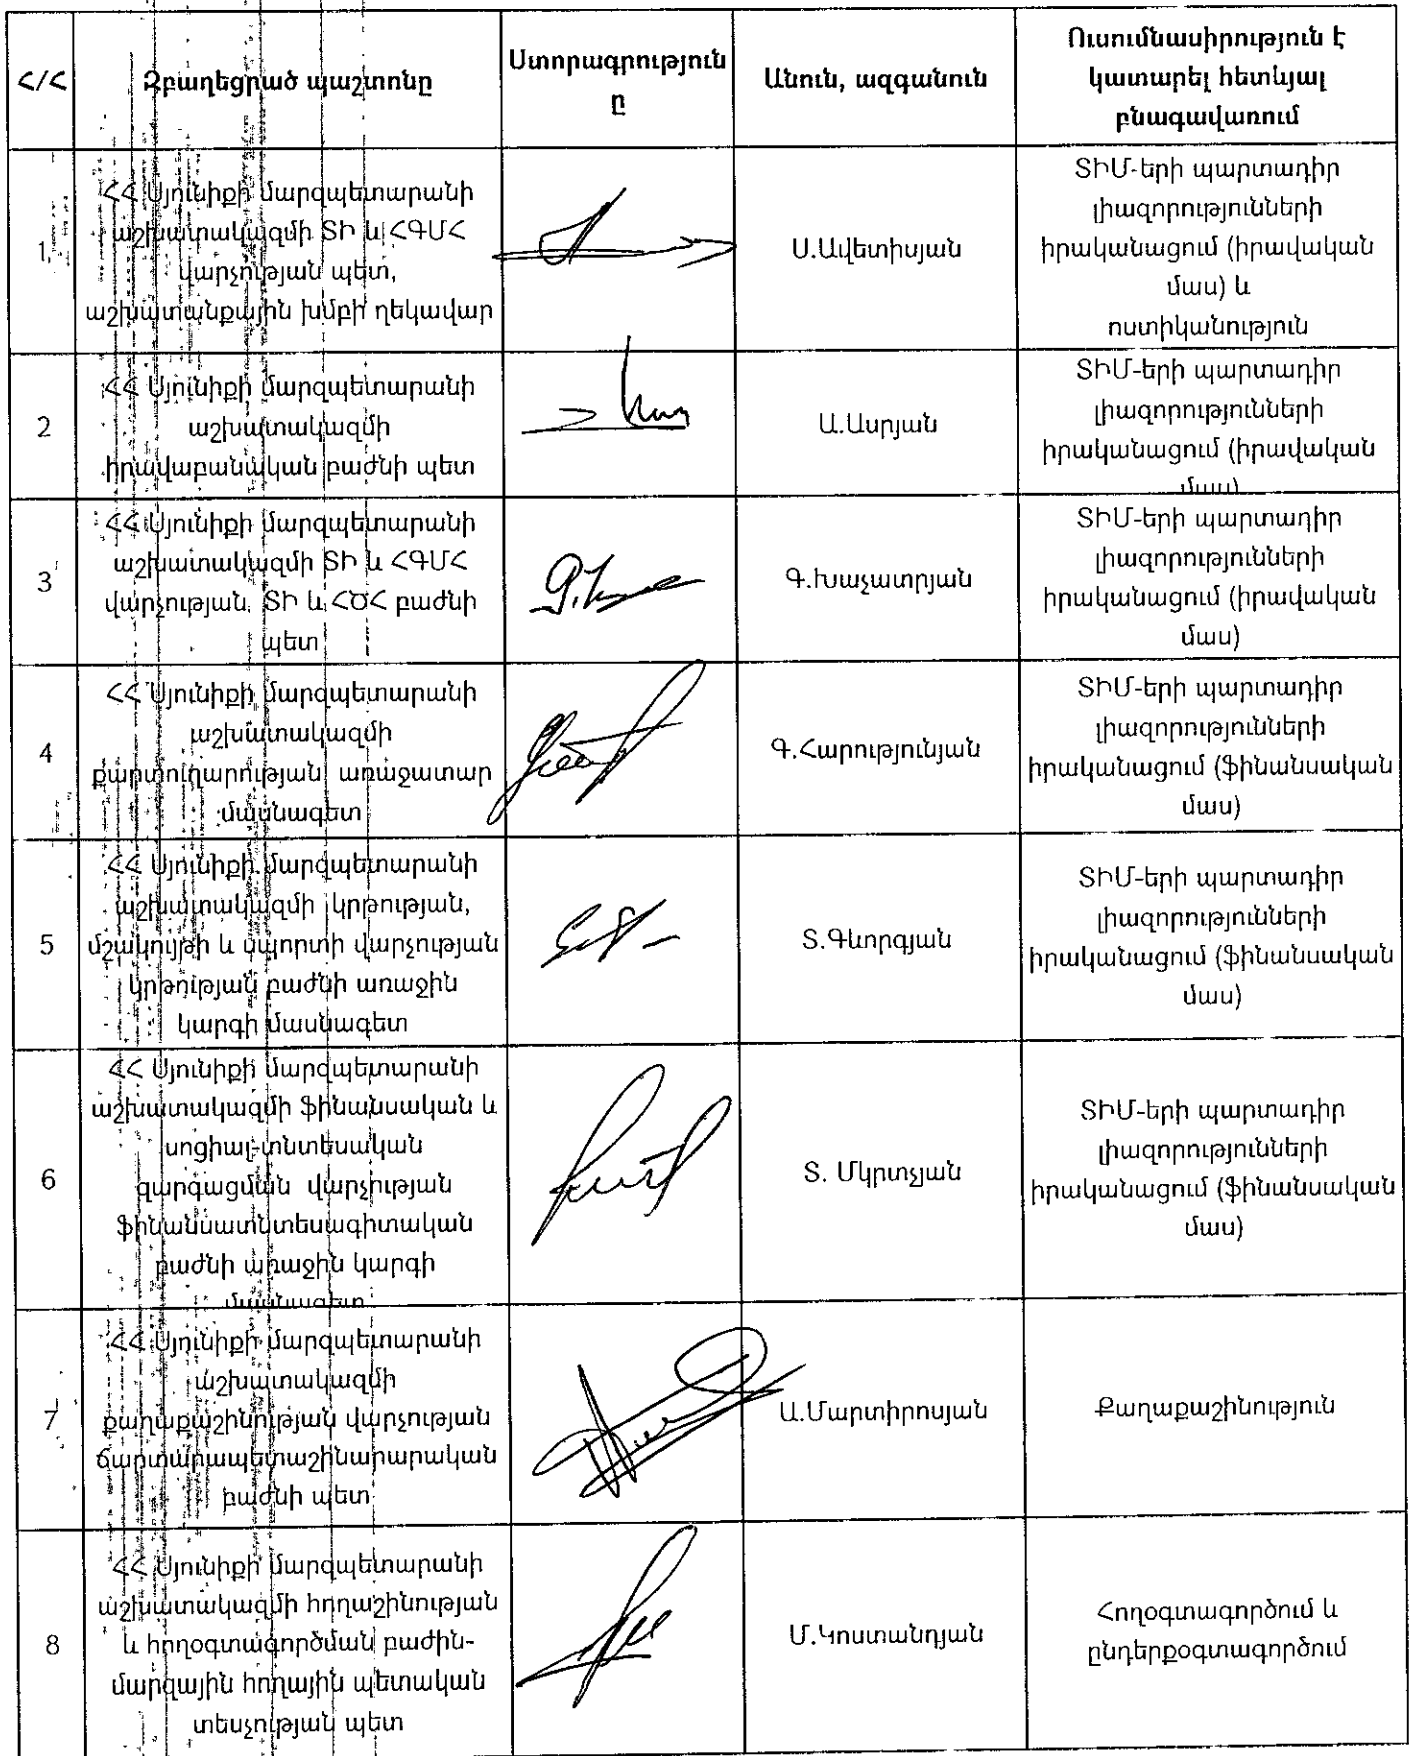 Հ/Հ
Զբաղեցրած պաշտոնը
Ստորագրություն
ը
Անուն, ազգանուն
Ուսումնասիրություն է
կատարել հետևյալ
բնագավառում
1.
ՀՀ Սյունիքի մարզպետարանի
աշխատակազմի ՏԻ և ՀԳՄՀ
վարչության պետ,
աշխատանքային խմբի ղեկավար
Ս.Ավետիսյան
ՏԻՄ-երի պարտադիր
լիազորությունների
իրականացում (իրավական
մաս) և
ոստիկանություն
2
ՀՀ Սյունիքի մարզպետարանի
աշխատակազմի
իրավաբանական բաժնի պետ
Ա.Ասրյան
ՏԻՄ-երի պարտադիր
լիազորությունների
իրականացում (իրավական
մաս)
3
ՀՀ Սյունիքի մարզպետարանի
աշխատակազմի ՏԻ և ՀԳՄՀ
վարչության ՏԻ և ՀԾՀ բաժնի
պետ
Գ.Խաչատրյան
ՏԻՄ-երի պարտադիր
լիազորությունների
իրականացում (իրավական
մաս)
4
ՀՀ Սյունիքի մարզպետարանի
աշխատակազմի
քարտուղարության առաջատար
մասնագետ
Գ.Հարությունյան
ՏԻՄ-երի պարտադիր
լիազորությունների
իրականացում (ֆինանսական
մաս)
5
ՀՀ Սյունիքի մարզպետարանի
աշխատակազմի կրթության,
մշակույթի և սպորտի վարչության
կրթության բաժնի առաջին
կարգի մասնագետ
Տ.Գևորգյան
ՏԻՄ-երի պարտադիր
լիազորությունների
իրականացում (ֆինանսական
մաս)
6
ՀՀ Սյունիքի մարզպետարանի
աշխատակազմի ֆինանսական և
սոցիալ-տնտեսական
զարգացման վարչության
ֆինանսատնտեսագիտական
բաժնի առաջին կարգի
մասնագետ
Տ. Մկրտչյան
ՏԻՄ-երի պարտադիր
լիազորությունների
իրականացում (ֆինանսական
մաս)
7
ՀՀ Սյունիքի մարզպետարանի
աշխատակազմի
քաղաքաշինության վարչության
ճարտարապետաշինարարական
բաժնի պետ
Ա.Մարտիրոսյան
Քաղաքաշինություն
8
ՀՀ Սյունիքի մարզպետարանի
աշխատակազմի հողաշինության
և հողօգտագործման բաժին-
մարզային հողային պետական
տեսչության պետ
Մ.Կոստանդյան
Հողօգտագործում և
ընդերքօգտագործում